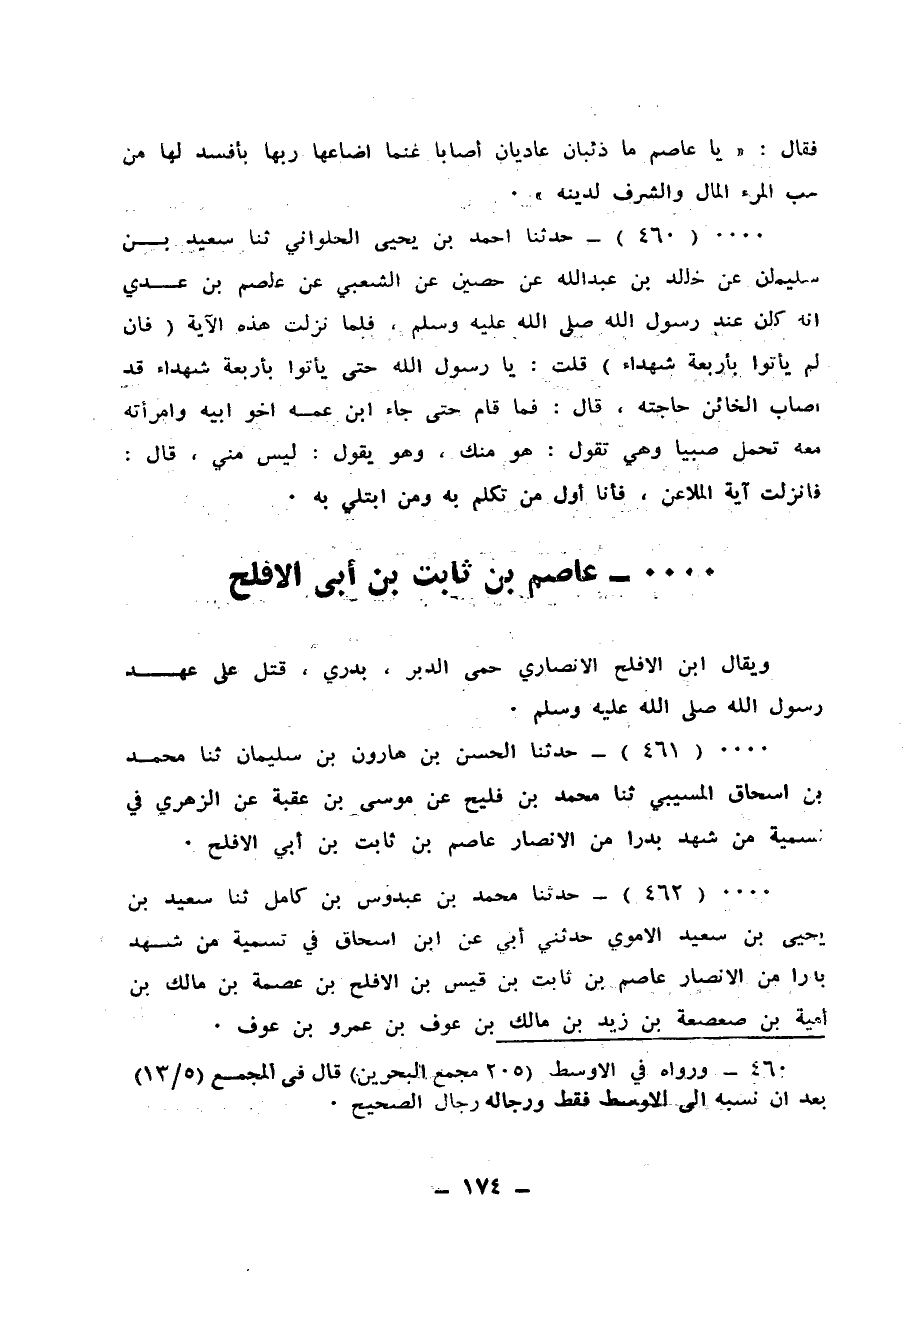 فقال : « يا عاصم ما ذئبان عاديان أصابا غنما اضاعها ربها بأفسد لها من
حب المرء المال والشرف لدينه » ٠
٠٠٠٠ ( ٤٦٠ ) ــ حدثنا احمد بن يحيى الحلواني ثنا سعيد بـــن
سليمان عن خالد بن عبدالله عن حصين عن الشعبي عن عاصم بن عـــدي
انه كان عند رسول الله صلى الله عليه وسلم ، فلما نزلت هذه الآية ( فان
لم يأتوا بأربعة شهداء ) قلت : يا رسول الله حتى يأتوا بأربعة شهداء قد
اصاب الخائن حاجته ، قال : فما قام حتى جاء ابن عمـه اخو ابيه وامرأته
معه تحمل صبيا وهي تقول : هو منك ، وهو يقول : ليس مني ، قال :
فانزلت آية الملاعن ، فأنا أول من تكلم به ومن ابتلي به ٠
٠٠٠٠ ــ عاصم بن ثابت بن أبى الافلح
ويقال ابن الافلح الانصاري حمى الدبر ، بدري ، قتل على عهـــد
رسول الله صلى الله عليه وسلم ٠
٠٠٠٠ ( ٤٦١ ) ــ حدثنا الحسن بن هارون بن سليمان ثنا محمـد
بن اسحاق المسيبي ثنا محمد بن فليح عن موسى بن عقبة عن الزهري في
تسمية من شهد بدرا من الانصار عاصم بن ثابت بن أبي الافلح ٠
٠٠٠٠ ( ٤٦٢ ) ــ حدثنا محمد بن عبدوس بن كامل ثنا سعيد بن
يحيى بن سعيد الاموي حدثني أبي عن ابن اسحاق في تسمية من شـهد
بدرا من الانصار عاصم بن ثابت بن قيس بن الافلح بن عصمة بن مالك بن
أمية بن صعصعة بن زيد بن مالك بن عوف بن عمرو بن عوف ٠
٤٦٠ ــ ورواه في الاوسط (٢٠٥ مجمع البحرين) قال فى المجمـع (١٣/٥)
بعد ان نسبه الى الاوسط فقط ورجاله رجال الصحيح ٠
ــ ١٧٤ ــ